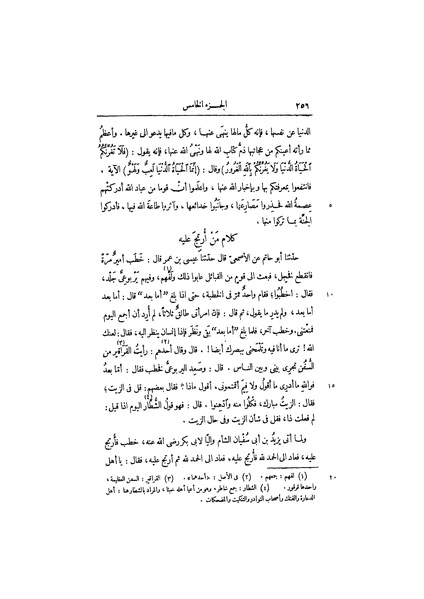 ٢٥٦ الجـزء الخامس
الدنيا عن نفسها، فإنه كلّ مالها ينهَى عنهـا، وكل مافيها يدعو الى غيرها. وأعظمُ
مما رأته أعينكم من عجائبها ذمُّ كتابِ الله لها ونهيُ الله عنها، فإنه يقول: (فَلَا تَغُرَّنَّكُمُ
الْحَيَاةُ الدُّنْيَا وَلَا يَغُرَّنَّكُمْ بِاللهِ الْغَرُورُ) وقال: (إِنَّمَا الْحَيَاةُ الدُّنْيَا لَعِبٌ وَلَهْوٌ) الآية.
فانتفعوا بمعرفتكم بها وبإخبار الله عنها، واعلموا أنّ قوما من عباد الله أدركتهم
٥ عصمةُ الله فحذِروا مَصَارعَها، وجانَبُوا خدائعها، وآثروا طاعةَ الله فيها. فأدركوا
الجنّة بمـا تركوا منها.
كلام مَنْ أُرتِجَ عليه
حدّثنا أبو حاتم عن الأصمعيّ قال حدّثنا عيسى بن عمر قال: خطَب أميرٌ مرّةً
فانقطع فخجِل، فبعث الى قوم من القبائل عابوا ذلك ولفّهم(١)، وفيهم يَرْبوعيٌّ جَلْد،
١٠ فقال: اخطبُوا؛ فقام واحدٌ فمرّ فى الخطبة، حتى اذا بلغ "أما بعد" قال: أما بعد
أما بعد، ولم يدر ما يقول، ثم قال: فإنّ امرأتى طالقٌ ثلاثًا، لم أُرِد أن أجمع اليوم
فمنعَتْنى. وخطب آخر، فلما بلغ "أما بعد" بقِى ونظَر فإذا إنسان ينظر اليه، فقال: لعنك
الله! ترى ما أنا فيه وتلمحنى ببصرك أيضا!. قال وقال أحدهم(٢): رأيتُ القَراقير(٣) من
السفُن تجرى بينى وبين الناس. قال: وصَعِد اليربوعىّ فخطب فقال: أمّا بعدُ
١٥ فوالله ما أدرِى ما أقولُ ولا فِيمَ أقمتمونى، أقول ماذا؟ فقال بعضهم: قل فى الزيت؛
فقال: الزيتُ مبارك، فكُلُوا منه وآدّهِنوا. قال: فهو قولُ الشُّطّار(٤) اليومَ اذا قيل:
لم فعلتَ ذا، فقل فى شأن الزيت وفى حال الزيت.
ولمـا أتى يزيدُ بن أبى سُفْيان الشأم واليًا لأبى بكر رضى الله عنه، خطب فأُرْتج
عليه، فعاد الى الحمد لله فأُرْتِجَ عليه، فعاد الى الحمد لله ثم أُرْتج عليه، فقال: يا أهل
٢٠ (١) لفّهم: جمعهم. (٢) فى الأصل: «أحدهما». (٣) القراقير: السفن العظيمة،
واحدها قرقور. (٤) الشطار: جمع شاطر، وهو من أعيا أهله خبثا، والمراد بالشطار هنا: أهل
الدعارة والفتك وأصحاب النوادر والتنكيت والمضحكات.